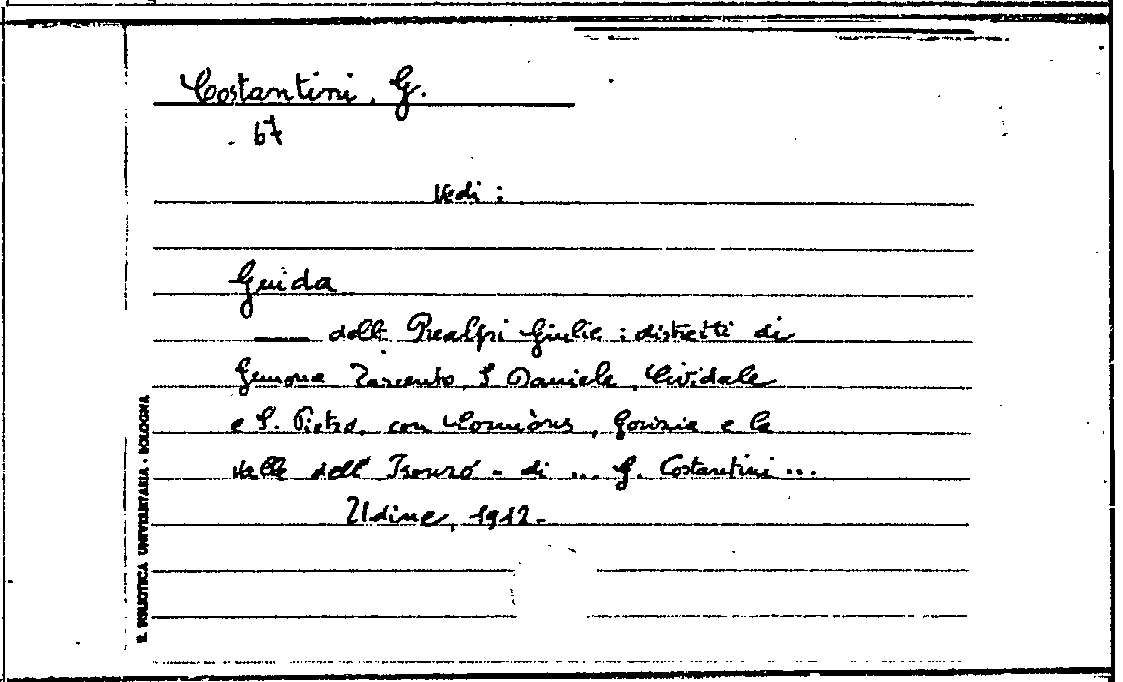 Costantini, G.
67
Vedi :
Guida
—— delle Prealpi Giulie : distretti di
Gemona Tarcento, S. Daniele, Cividale
e S. Pietro, con Cormòns, Gorizia e la
valle dell' Isonzo - di ... G. Costantini ...
Udine, 1912.
R. BIBLIOTECA UNIVERSITARIA - BOLOGNA